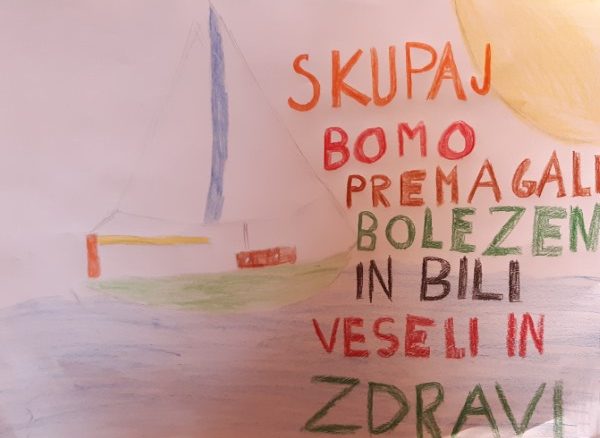 SKUPAJ
BOMO
PREMAGALI
BOLEZEN
IN BILI
VESELI IN
ZDRAVI